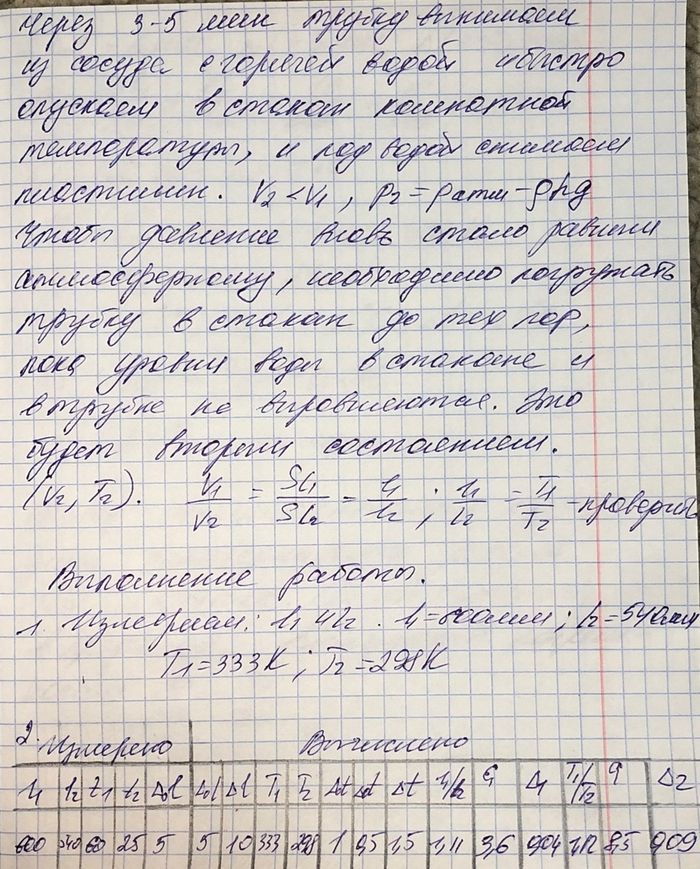 Через 3-5 мин трубку вынимаем
из сосуда с горячей водой и быстро
опускаем в стакан комнатной
температуры, и под водой снимаем
пластилин. V₂ < V₁, p₂ = pатм - ρhg
Чтобы давление вновь стало равным
атмосферному, необходимо погружать
трубку в стакан до тех пор,
пока уровни воды в стакане и
в трубке не выровняются. Это
будет вторым состоянием.
(V₂, T₂). V₁/V₂ = Sl₁/Sl₂ = l₁/l₂ ; l₁/l₂ = T₁/T₂ - проверить
Выполнение работы.
1. Измеряем: l₁ и l₂. l₁ = 600мм ; l₂ = 540мм
T₁ = 333К ; T₂ = 298К
2. Измерено Вычислено
l₁ l₂ t₁ t₂ Δиl Δоl Δl T₁ T₂ Δиt Δоt Δt l₁/l₂ ε₁ Δ₁ T₁/T₂ ε Δ₂
600 540 60 25 5 5 10 333 298 1 0,5 1,5 1,11 3,6 0,04 1,12 8,5 0,09